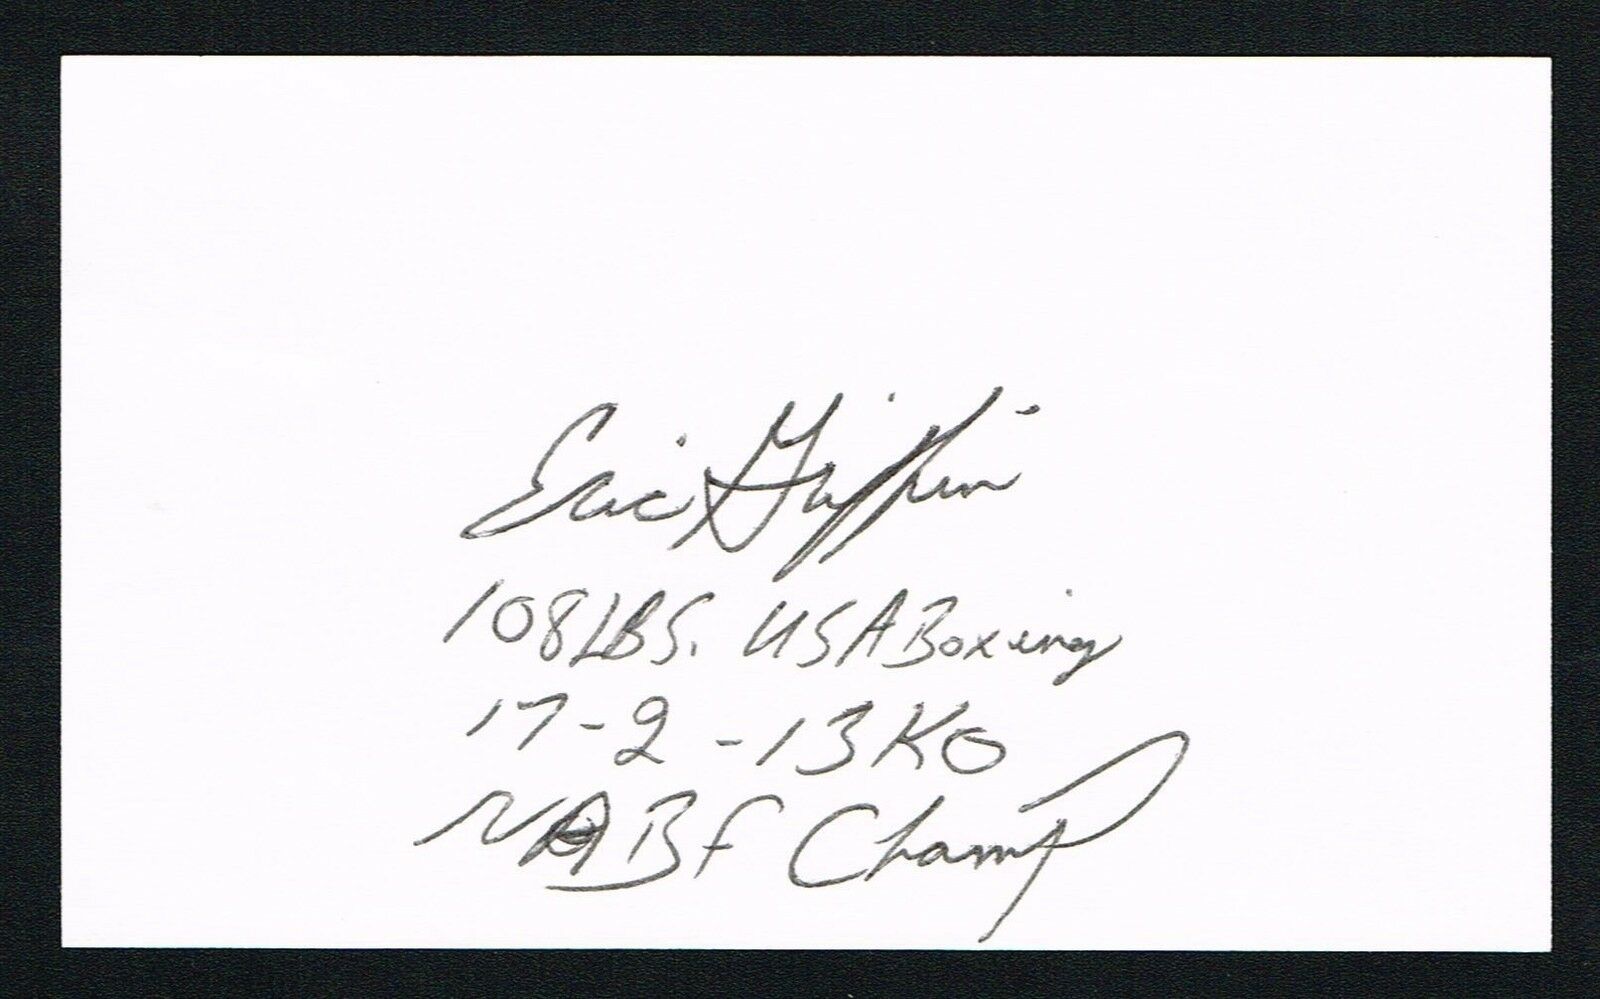 Eric Griffin
108 LBS. USA Boxing
17-2-13 KO
NABF Champ